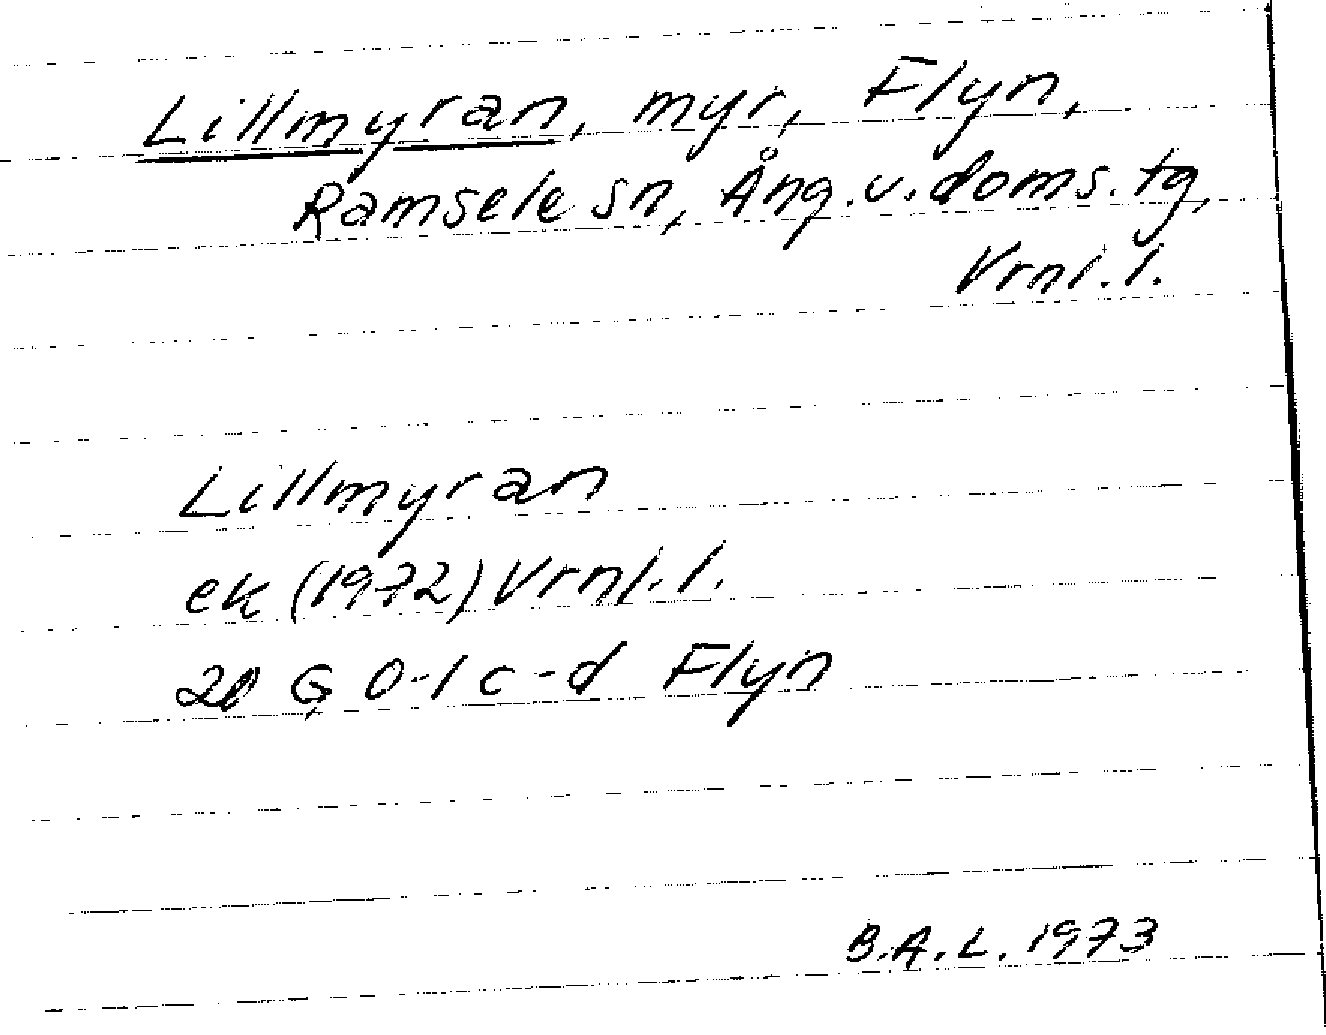 Lillmyran, myr, Flyn,
Ramsele sn, Ång.v.doms.tg,
Vrnl.l.
Lillmyran
ek (1972) Vrnl.l.
20 G 0-1 c-d Flyn
B.A.L. 1973